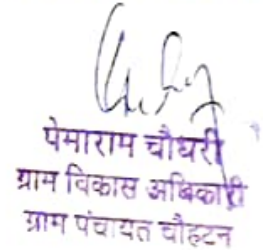 पेमाराम चौधरी
ग्राम विकास अधिकारी
ग्राम पंचायत चौहटन